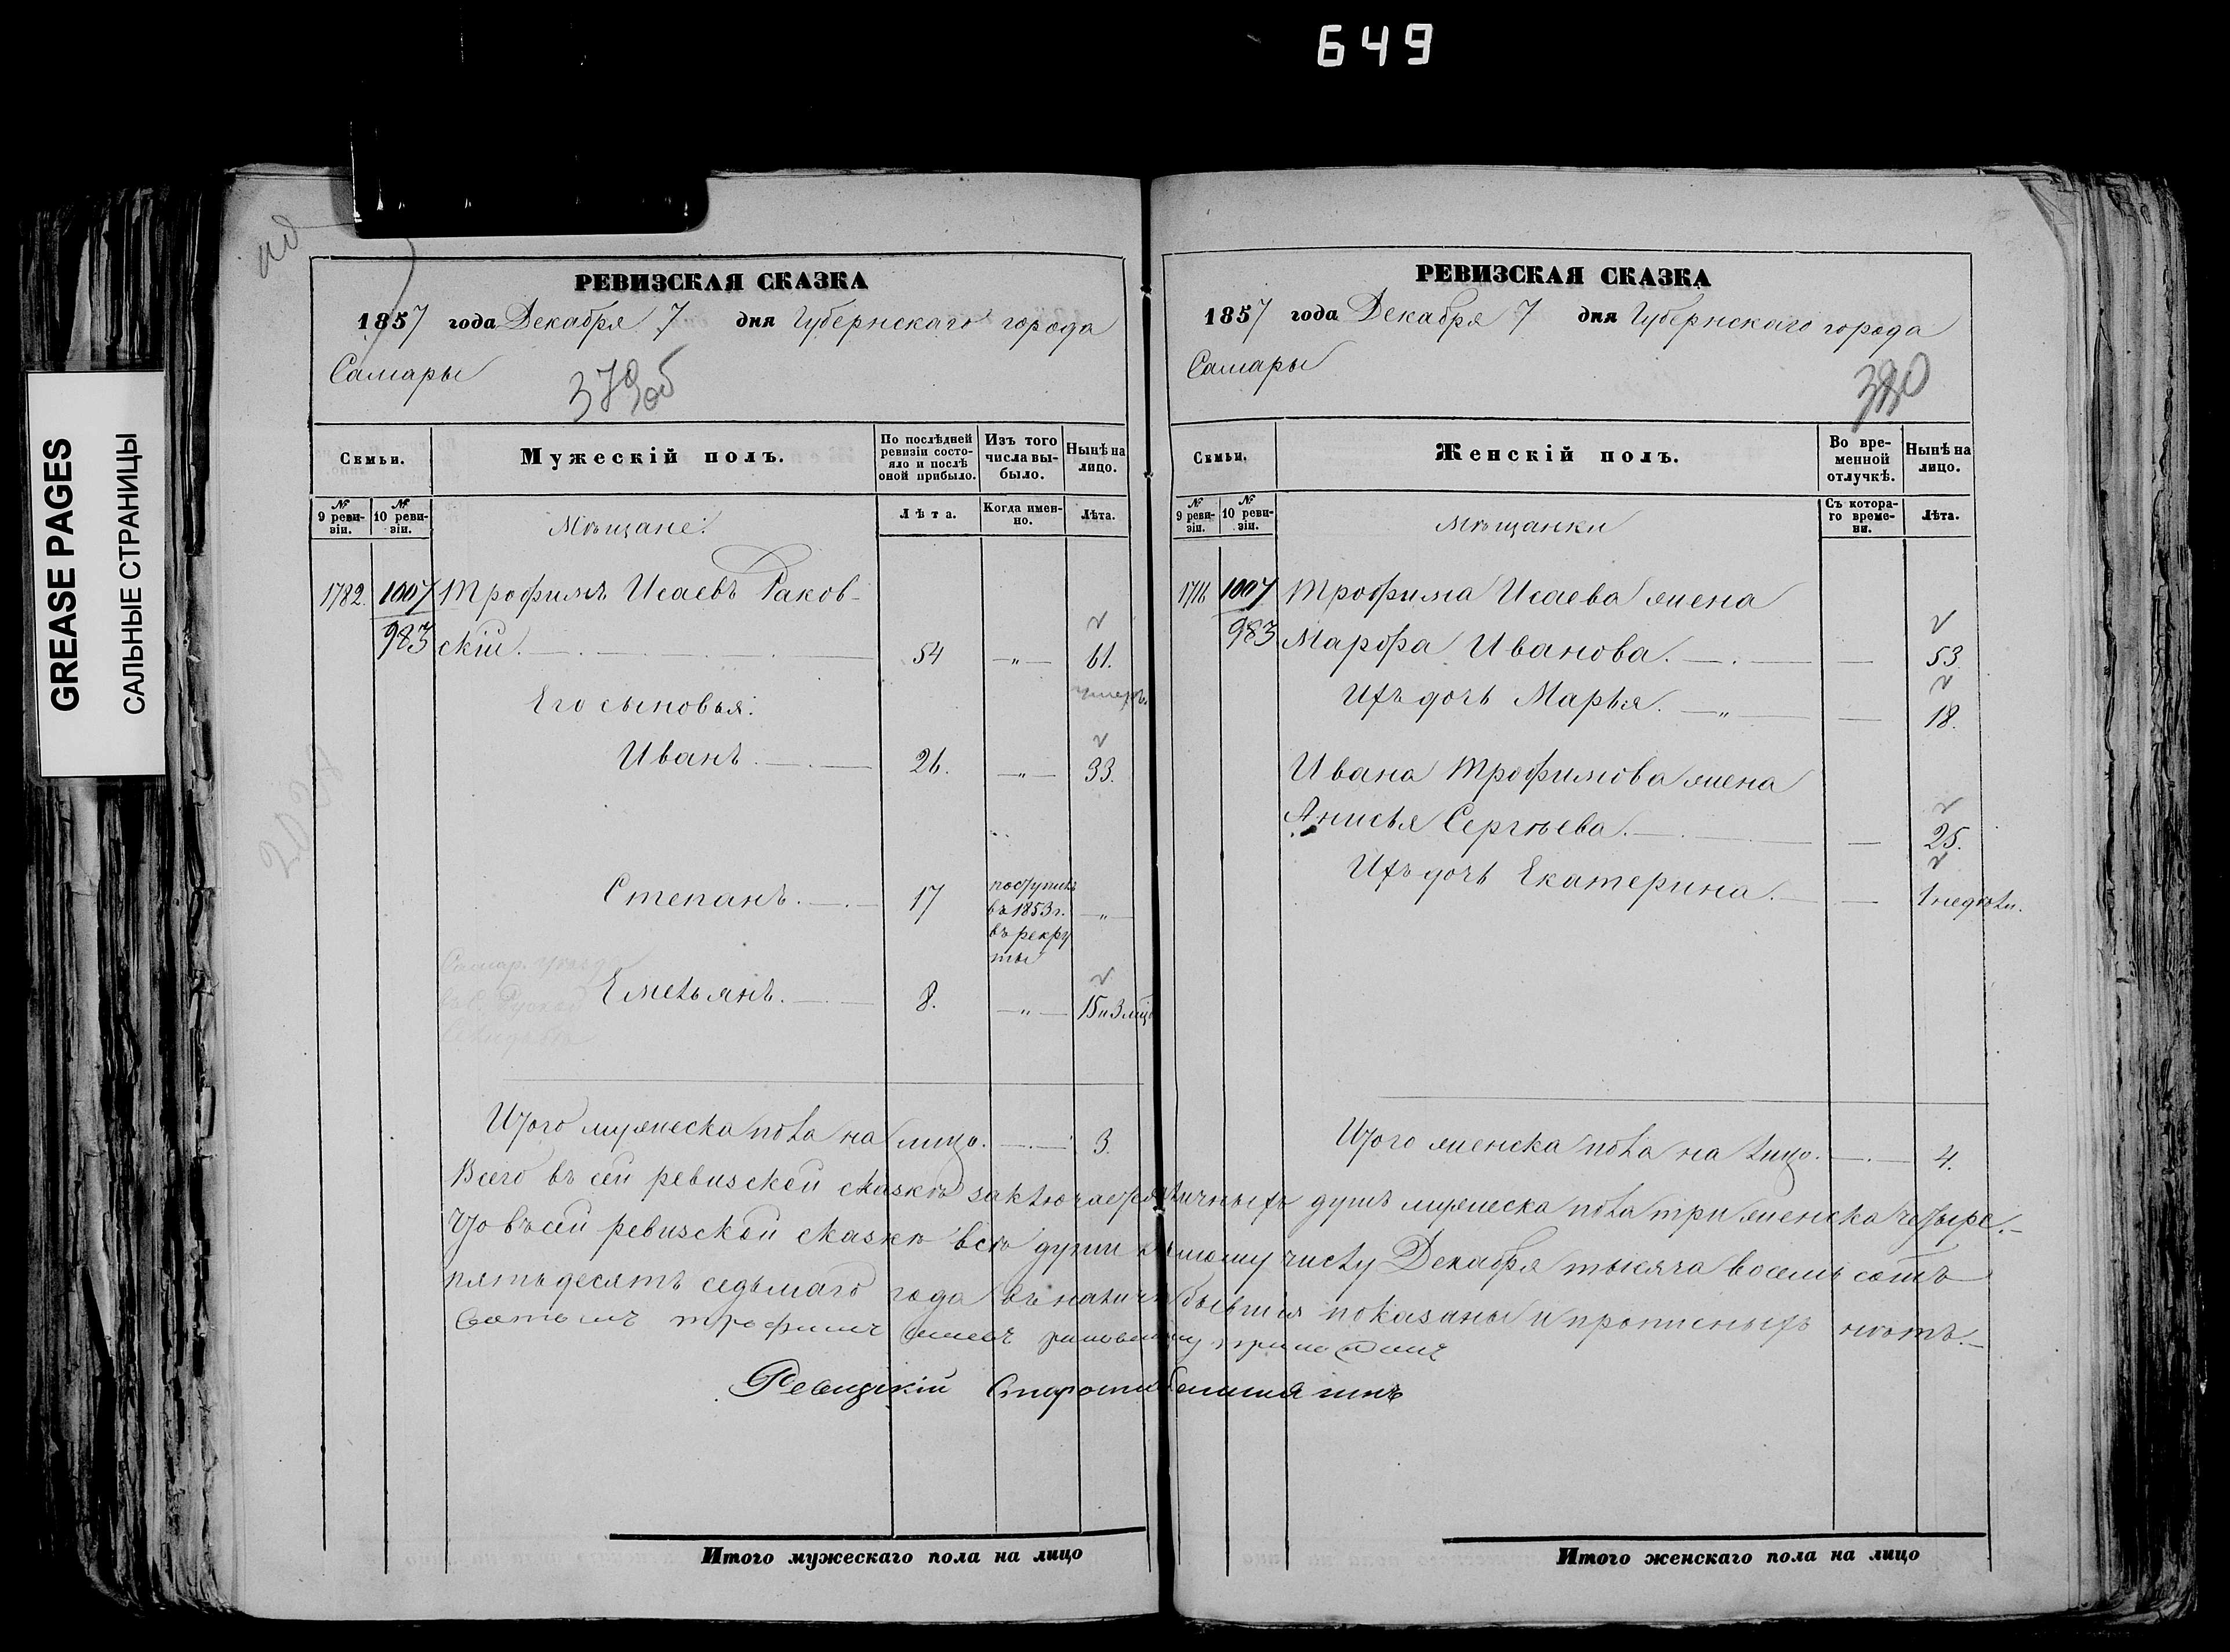 649
GREASE PAGES
САЛЬНЫЕ СТРАНИЦЫ
РЕВИЗСКАЯ СКАЗКА
1857 года Декабря 7 дня Губернскаго города
Самары
379об
Семьи.
Мужескій полъ.
По послѣдней ревизіи состо-
яло и послѣ
оной прибыло.
Изъ того
числа вы-
было.
Нынѣ на
лицо.
№ 9 реви-
зіи.
№ 10 реви-
зіи.
Мѣщане:
Лѣта.
Когда имен-
но.
Лѣта.
1782. 1007 Трофимъ Исаевъ Раков-
983 скій. 54 " 61.
умеръ.
Его сыновья:
Иванъ. 26. " 33.
Степанъ. 17 поступилъ
въ 1853 г. "
въ рекру
ты
Емельянъ. 8. " 15 и 3 мѣц
Итого мужеска пола на лицо. 3.
РЕВИЗСКАЯ СКАЗКА
1857 года Декабря 7 дня Губернскаго города
Самары
380
Семьи.
Женскій полъ.
Во вре-
менной
отлучкѣ.
Нынѣ на
лицо.
№ 9 реви-
зіи.
№ 10 реви-
зіи.
Мѣщанки
Съ котора-
го време-
ни.
Лѣта.
1007 Трофима Исаева жена
983 Марфа Иванова. 53.
Ихъ дочь Марья. " 18.
Ивана Трофимова жена
Анисья Сергѣева. 25.
Ихъ дочь Екатерина. 1 недѣли.
Итого женска пола на лицо. 4.
Всего въ сей ревизской сказкѣ заключается личныхъ душъ мужеска пола три женска четыре.
Что въ сей ревизской сказкѣ всѣ души къ 7му числу Декабря тысяча восемь сотъ
пятьдесятъ седьмаго года въ наличіи бывшія показаны и прописныхъ нѣтъ.
Ревизскій Староста
Итого мужескаго пола на лицо
Итого женскаго пола на лицо